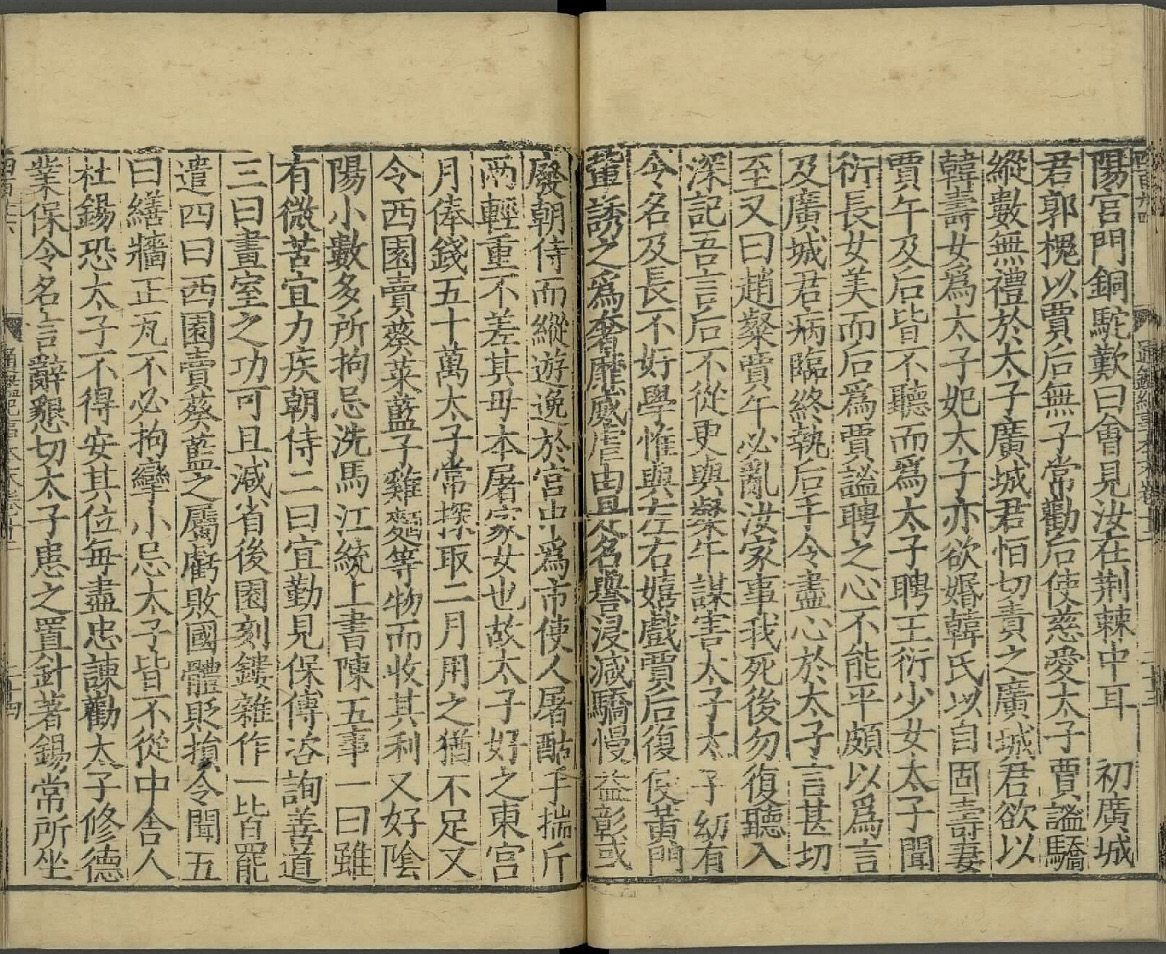 陽宮門銅駝歎曰會見汝在荆棘中耳　初廣城
君郭槐以賈后無子常勸后使慈愛太子賈謐驕
縱數無禮於太子廣城君恒切責之廣城君欲以
韓壽女爲太子妃太子亦欲婚韓氏以自固壽妻
賈午及后皆不聽而爲太子聘王衍少女太子聞
衍長女美而后爲賈謐聘之心不能平頗以爲言
及廣城君病臨終執后手令盡心於太子言甚切
至又曰趙粲賈午必亂汝家事我死後勿復聽入
深記吾言后不從更與粲午謀害太子太子幼有
令名及長不好學惟與左右嬉戲賈后復使黃門
輩誘之爲奢靡威虐由是名譽浸減驕慢益彰或
廢朝侍而縱遊逸於宮中爲市使人屠酤手揣斤
兩輕重不差其母本屠家女也故太子好之東宮
月俸錢五十萬太子常探取二月用之猶不足又
令西園賣葵菜藍子雞麵等物而收其利又好陰
陽小數多所拘忌洗馬江統上書陳五事一曰雖
有微苦宜力疾朝侍二曰宜勤見保傅咨詢善道
三曰畫室之功可且減省後園刻鏤雜作一皆罷
遣四曰西園賣葵藍之屬虧敗國體貶損令聞五
曰繕牆正瓦不必拘攣小忌太子皆不從中舍人
杜錫恐太子不得安其位每盡忠諫勸太子修德
業保令名言辭懇切太子患之置針著錫常所坐